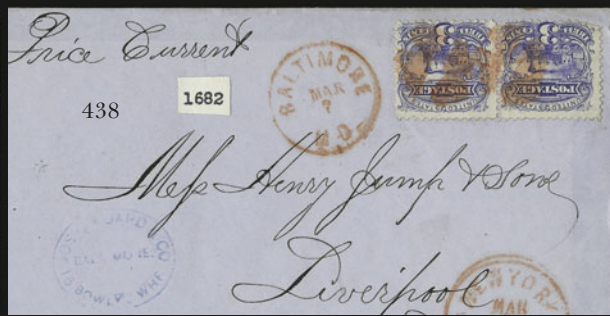 Price Current
438
1682
BALTIMORE
MAR
7
MD
POSTAGE
POSTAGE
Mess Henry Jump & Sons
Liverpool
CO
BOWLY'S WHF
NEW YORK
MAR